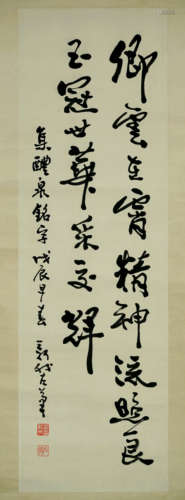 卿雲在霄精神流照良
玉冠世華采交輝
集醴泉銘字戊辰早春